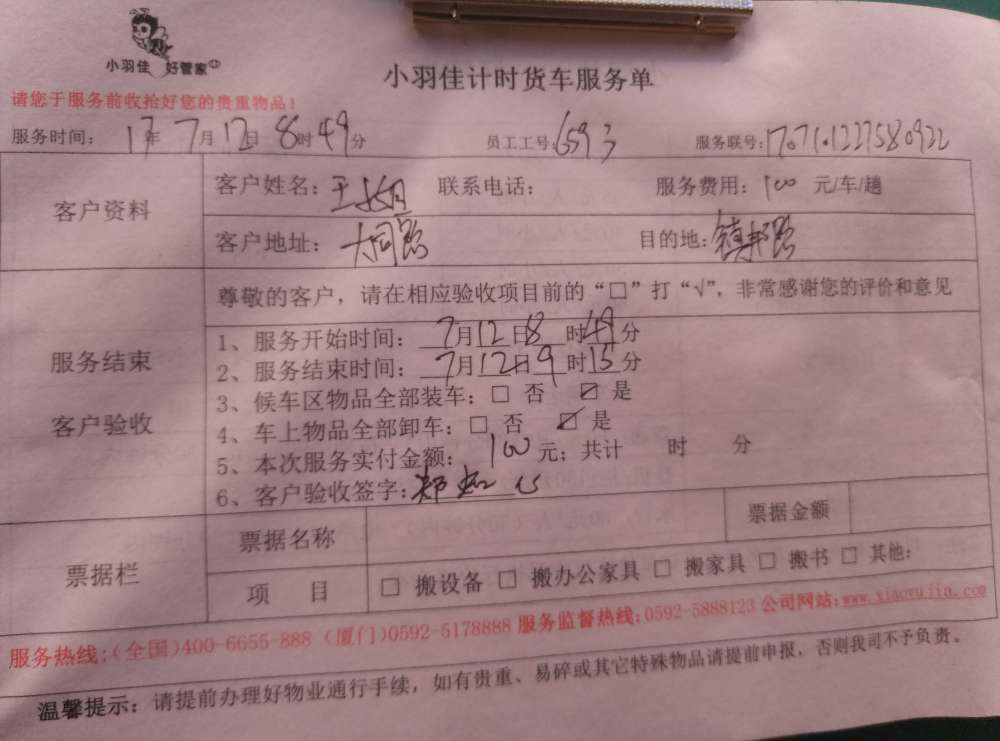 小羽佳 好管家
小羽佳计时货车服务单
请您于服务前收拾好您的贵重物品！
服务时间： 17年 7月12日 8时49分 员工工号：6593 服务联号：17071.1227580922
客户资料
客户姓名：王 联系电话： 服务费用：100 元/车/趟
客户地址：大同路 目的地：镇邦路
尊敬的客户，请在相应验收项目前的“□”打“√”，非常感谢您的评价和意见
服务结束
客户验收
1、服务开始时间： 7月12日8时49分
2、服务结束时间： 7月12日9时15分
3、候车区物品全部装车：□ 否 ☑ 是
4、车上物品全部卸车：□ 否 ☑ 是
5、本次服务实付金额： 100 元；共计 时 分
6、客户验收签字：郑
票据栏
票据名称 票据金额
项 目 □ 搬设备 □ 搬办公家具 □ 搬家具 □ 搬书 □ 其他：
服务热线：（全国）400-6655-888 （厦门）0592-5178888 服务监督热线：0592-5888123 公司网站：www.xiaoyujia.com
温馨提示：请提前办理好物业通行手续，如有贵重、易碎或其它特殊物品请提前申报，否则我司不予负责。